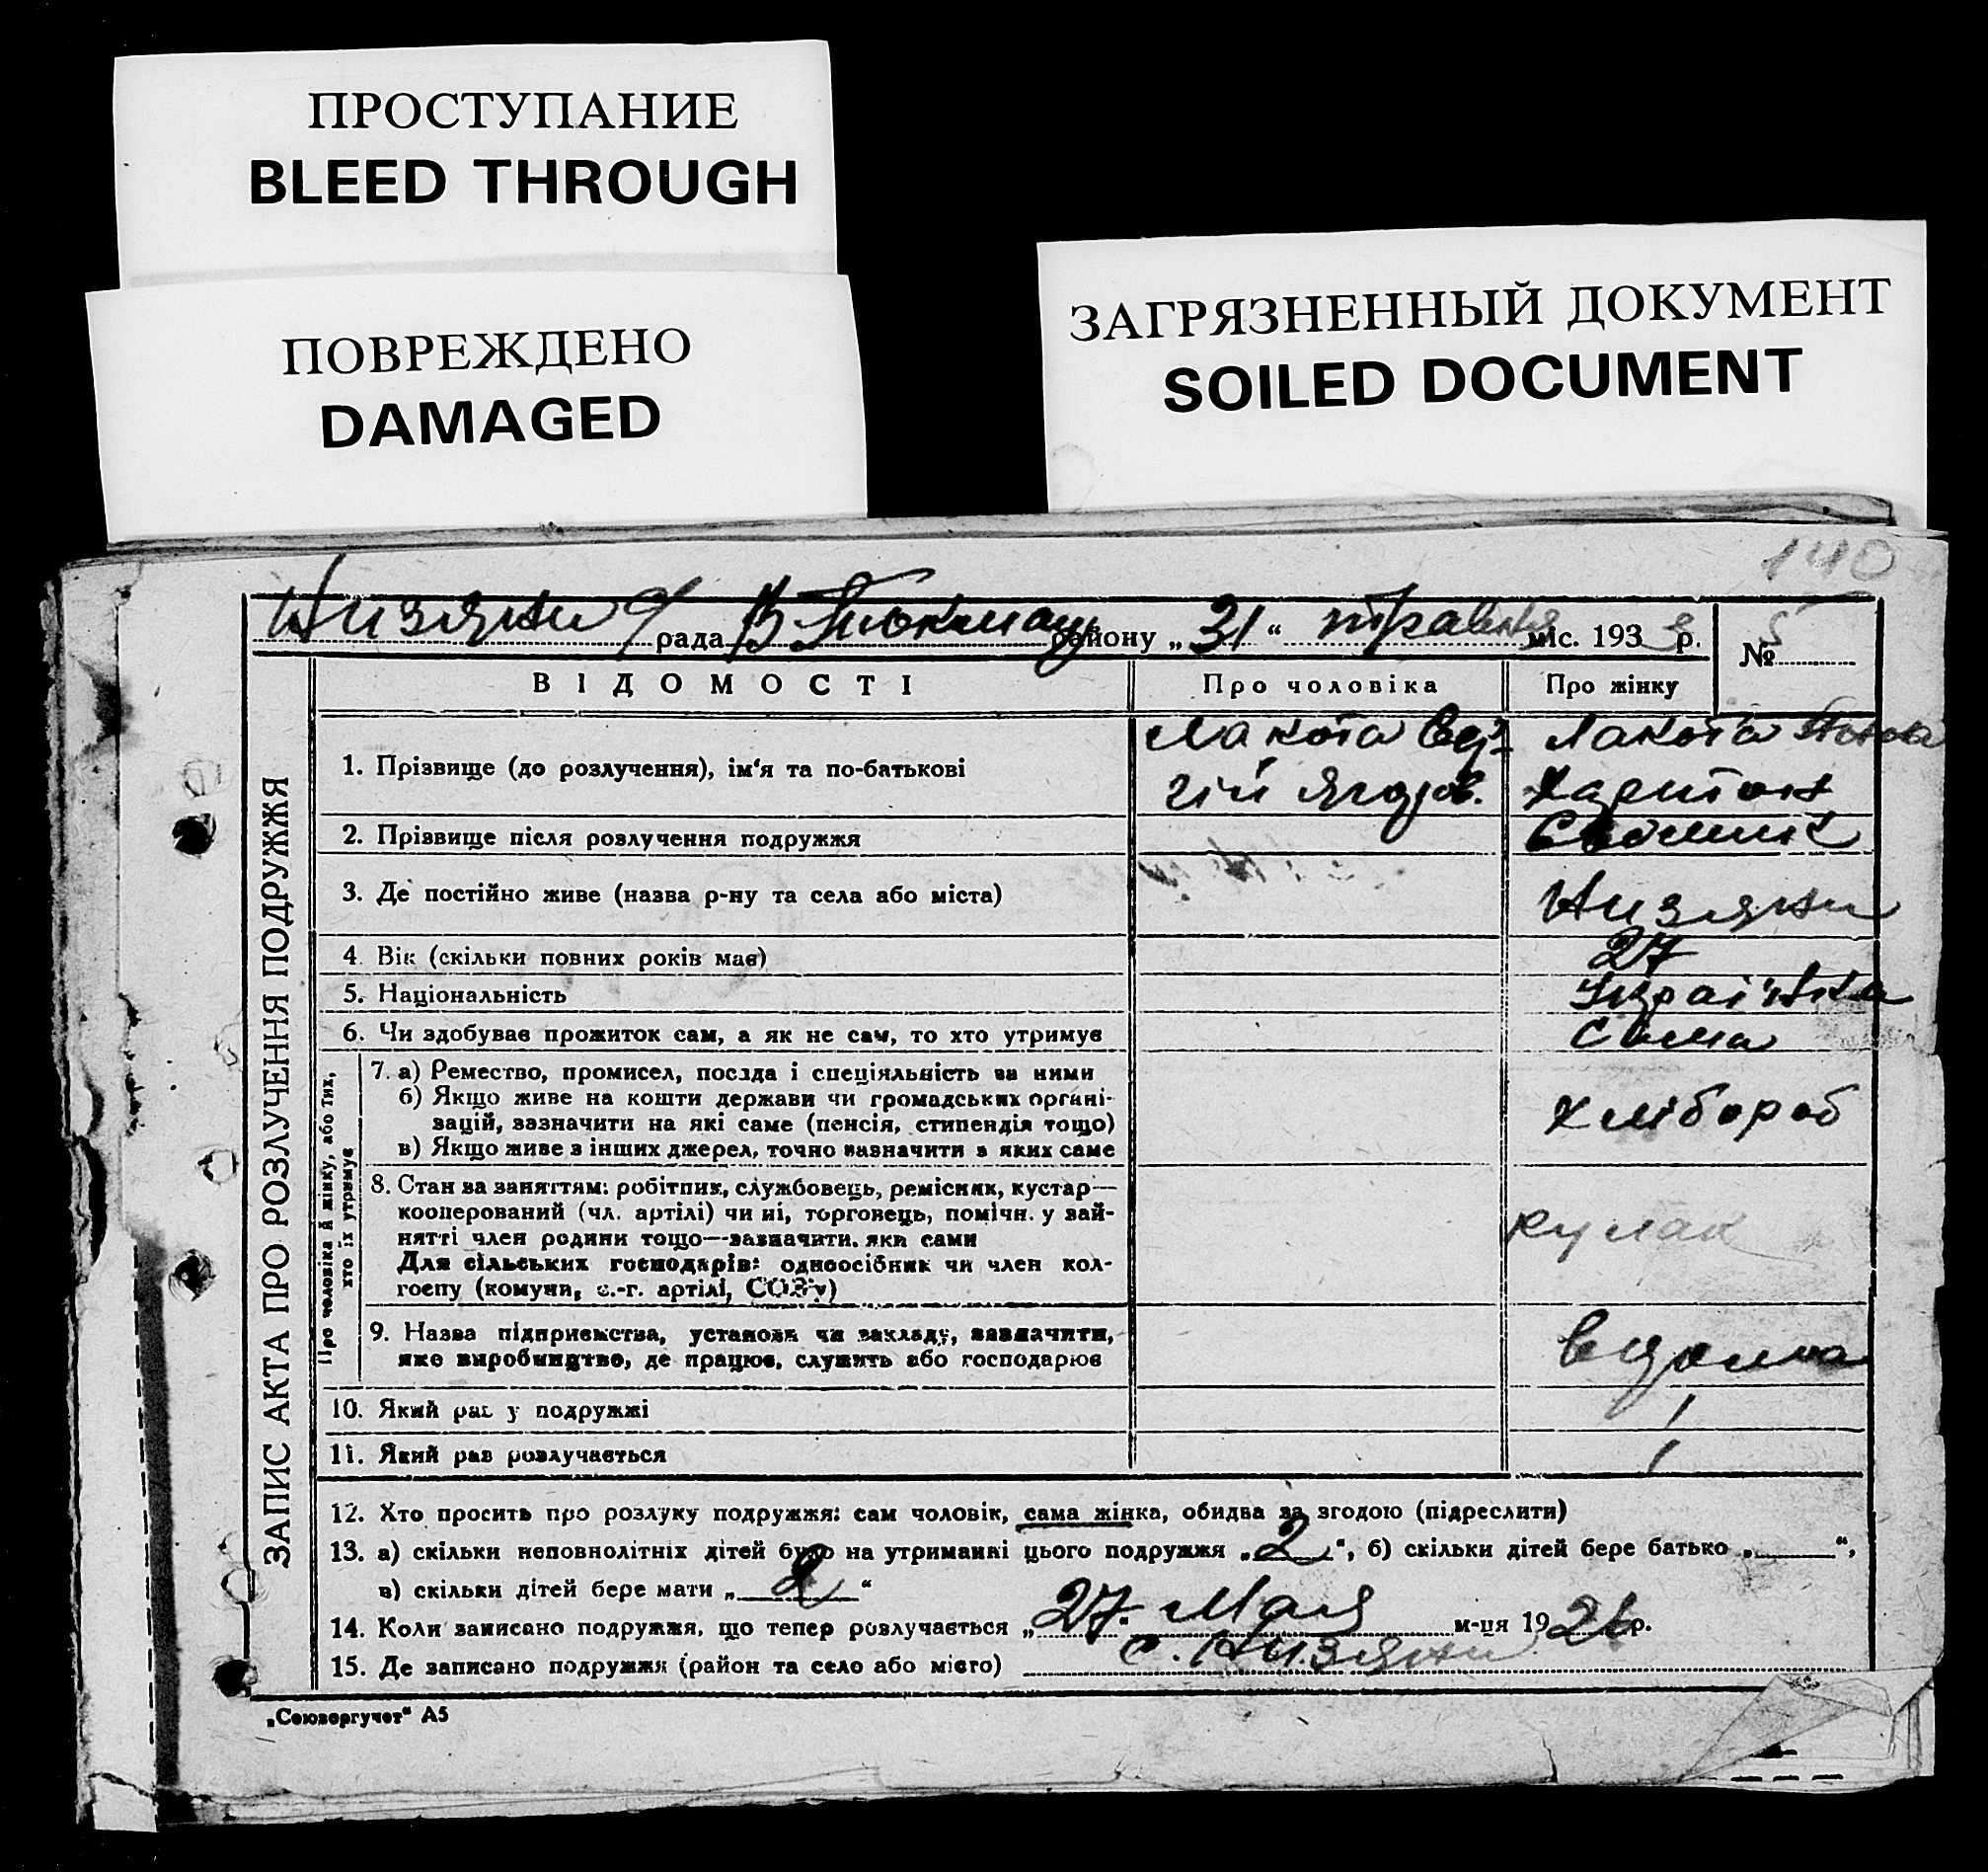 ПРОСТУПАНИЕ
BLEED THROUGH
ПОВРЕЖДЕНО
DAMAGED
ЗАГРЯЗНЕННЫЙ ДОКУМЕНТ
SOILED DOCUMENT
140
Низяни рада В Токмац району „31“ травня міс. 193 р.
№ 5
ЗАПИС АКТА ПРО РОЗЛУЧЕННЯ ПОДРУЖЖЯ
ВІДОМОСТІ Про чоловіка Про жінку
1. Прізвище (до розлучення), ім'я та по-батькові
Лакота Сер-
гій
Лакота
Харитон
2. Прізвище після розлучення подружжя
3. Де постійно живе (назва р-ну та села або міста) Низяни
4. Вік (скільки повних років має) 27
5. Національність Українка
6. Чи здобуває прожиток сам, а як не сам, то хто утримує сама
Про чоловіка й жінку, або тих,
хто їх утримує
7. а) Ремество, промисел, посада і спеціяльність за ними
б) Якщо живе на кошти держави чи громадських органі-
зацій, зазначити на які саме (пенсія, стипендія тощо)
в) Якщо живе з інших джерел, точно зазначити з яких саме
хлібороб
8. Стан за заняттям: робітник, службовець, ремісник, кустар—
кооперований (чл. артілі) чи ні, торговець, помічн. у зай-
нятті член родини тощо—зазначити, яки сами
Для сільських господарів: одноосібник чи член кол-
госпу (комуни, с.-г. артілі, СОЗу)
кулак
9. Назва підприємства, установи чи закладу, зазначити,
яке виробництво, де працює, служить або господарює
вдома
10. Який раз у подружжі 1
11. Який раз розлучається 1
12. Хто просить про розлуку подружжя: сам чоловік, сама жінка, обидва за згодою (підреслити)
13. а) скільки неповнолітніх дітей було на утриманні цього подружжя „2“, б) скільки дітей бере батько „ “,
в) скільки дітей бере мати „2“
14. Коли записано подружжя, що тепер розлучається „27“ Мая м-ця 1926 р.
15. Де записано подружжя (район та село або місто) с. Низяни
„Союзоргучет“ А5